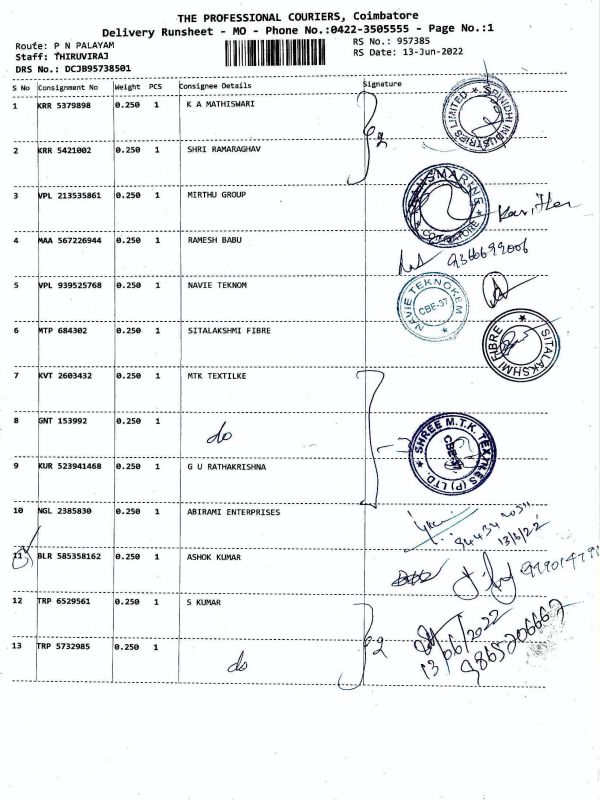 THE PROFESSIONAL COURIERS, Coimbatore
Delivery Runsheet - MO - Phone No.:0422-3505555 - Page No.:1
Route: P N PALAYAM
Staff: THIRUVIRAJ
DRS No.: DCJB95738501
RS No.: 957385
RS Date: 13-Jun-2022
S No Consignment No Weight PCS Consignee Details Signature
1 KRR 5379898 0.250 1 K A MATHISWARI
SRINIDHI INDUSTRIES LIMITED
2 KRR 5421002 0.250 1 SHRI RAMARAGHAV
2
3 VPL 213535861 0.250 1 MIRTHU GROUP
COIMBATORE
4 MAA 567226944 0.250 1 RAMESH BABU
9366699006
5 VPL 939525768 0.250 1 NAVIE TEKNOM
NAVIE TEKNOKEM
CBE-37
6 MTP 684302 0.250 1 SITALAKSHMI FIBRE
SITALAKSHMI FIBRE
7 KVT 2603432 0.250 1 MTK TEXTILKE
8 GNT 153992 0.250 1 do
SHREE M.T.K. TEXTILES (P) LTD.
CBE-37.
9 KUR 523941468 0.250 1 G U RATHAKRISHNA
10 NGL 2385830 0.250 1 ABIRAMI ENTERPRISES
13/6/22
11 BLR 585358162 0.250 1 ASHOK KUMAR
12 TRP 6529561 0.250 1 S KUMAR
13/06/2022
9865206662
2
13 TRP 5732985 0.250 1 do